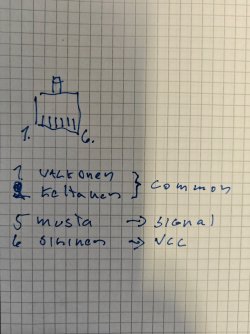 1. 6.
1 Valkonen } common
2 Keltanen
5 musta → signal
6 Sininen → VCC